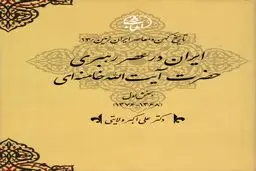 تاریخ کهن و معاصر ایران زمین (۱۳)
ایران در عصر رهبری
حضرت آیت‌الله خامنه‌ای
بخش اول
(۱۳۷۶-۱۳۶۸)
دکتر علی اکبر ولایتی